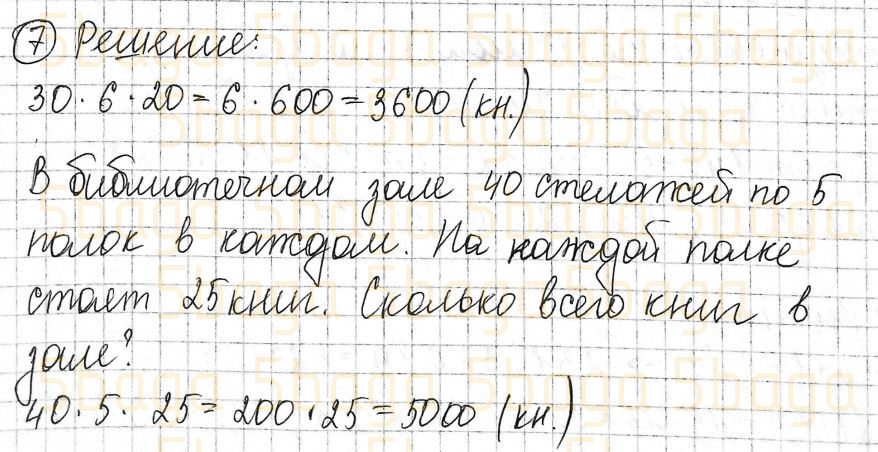 7 Решение:
30 · 6 · 20 = 6 · 600 = 3600 (кн.)
В библиотечном зале 40 стелажей по 5
полок в каждом. На каждой полке
стоят 25 книг. Сколько всего книг в
зале?
40 · 5 · 25 = 200 · 25 = 5000 (кн.)
5baga 5baga 5baga 5baga